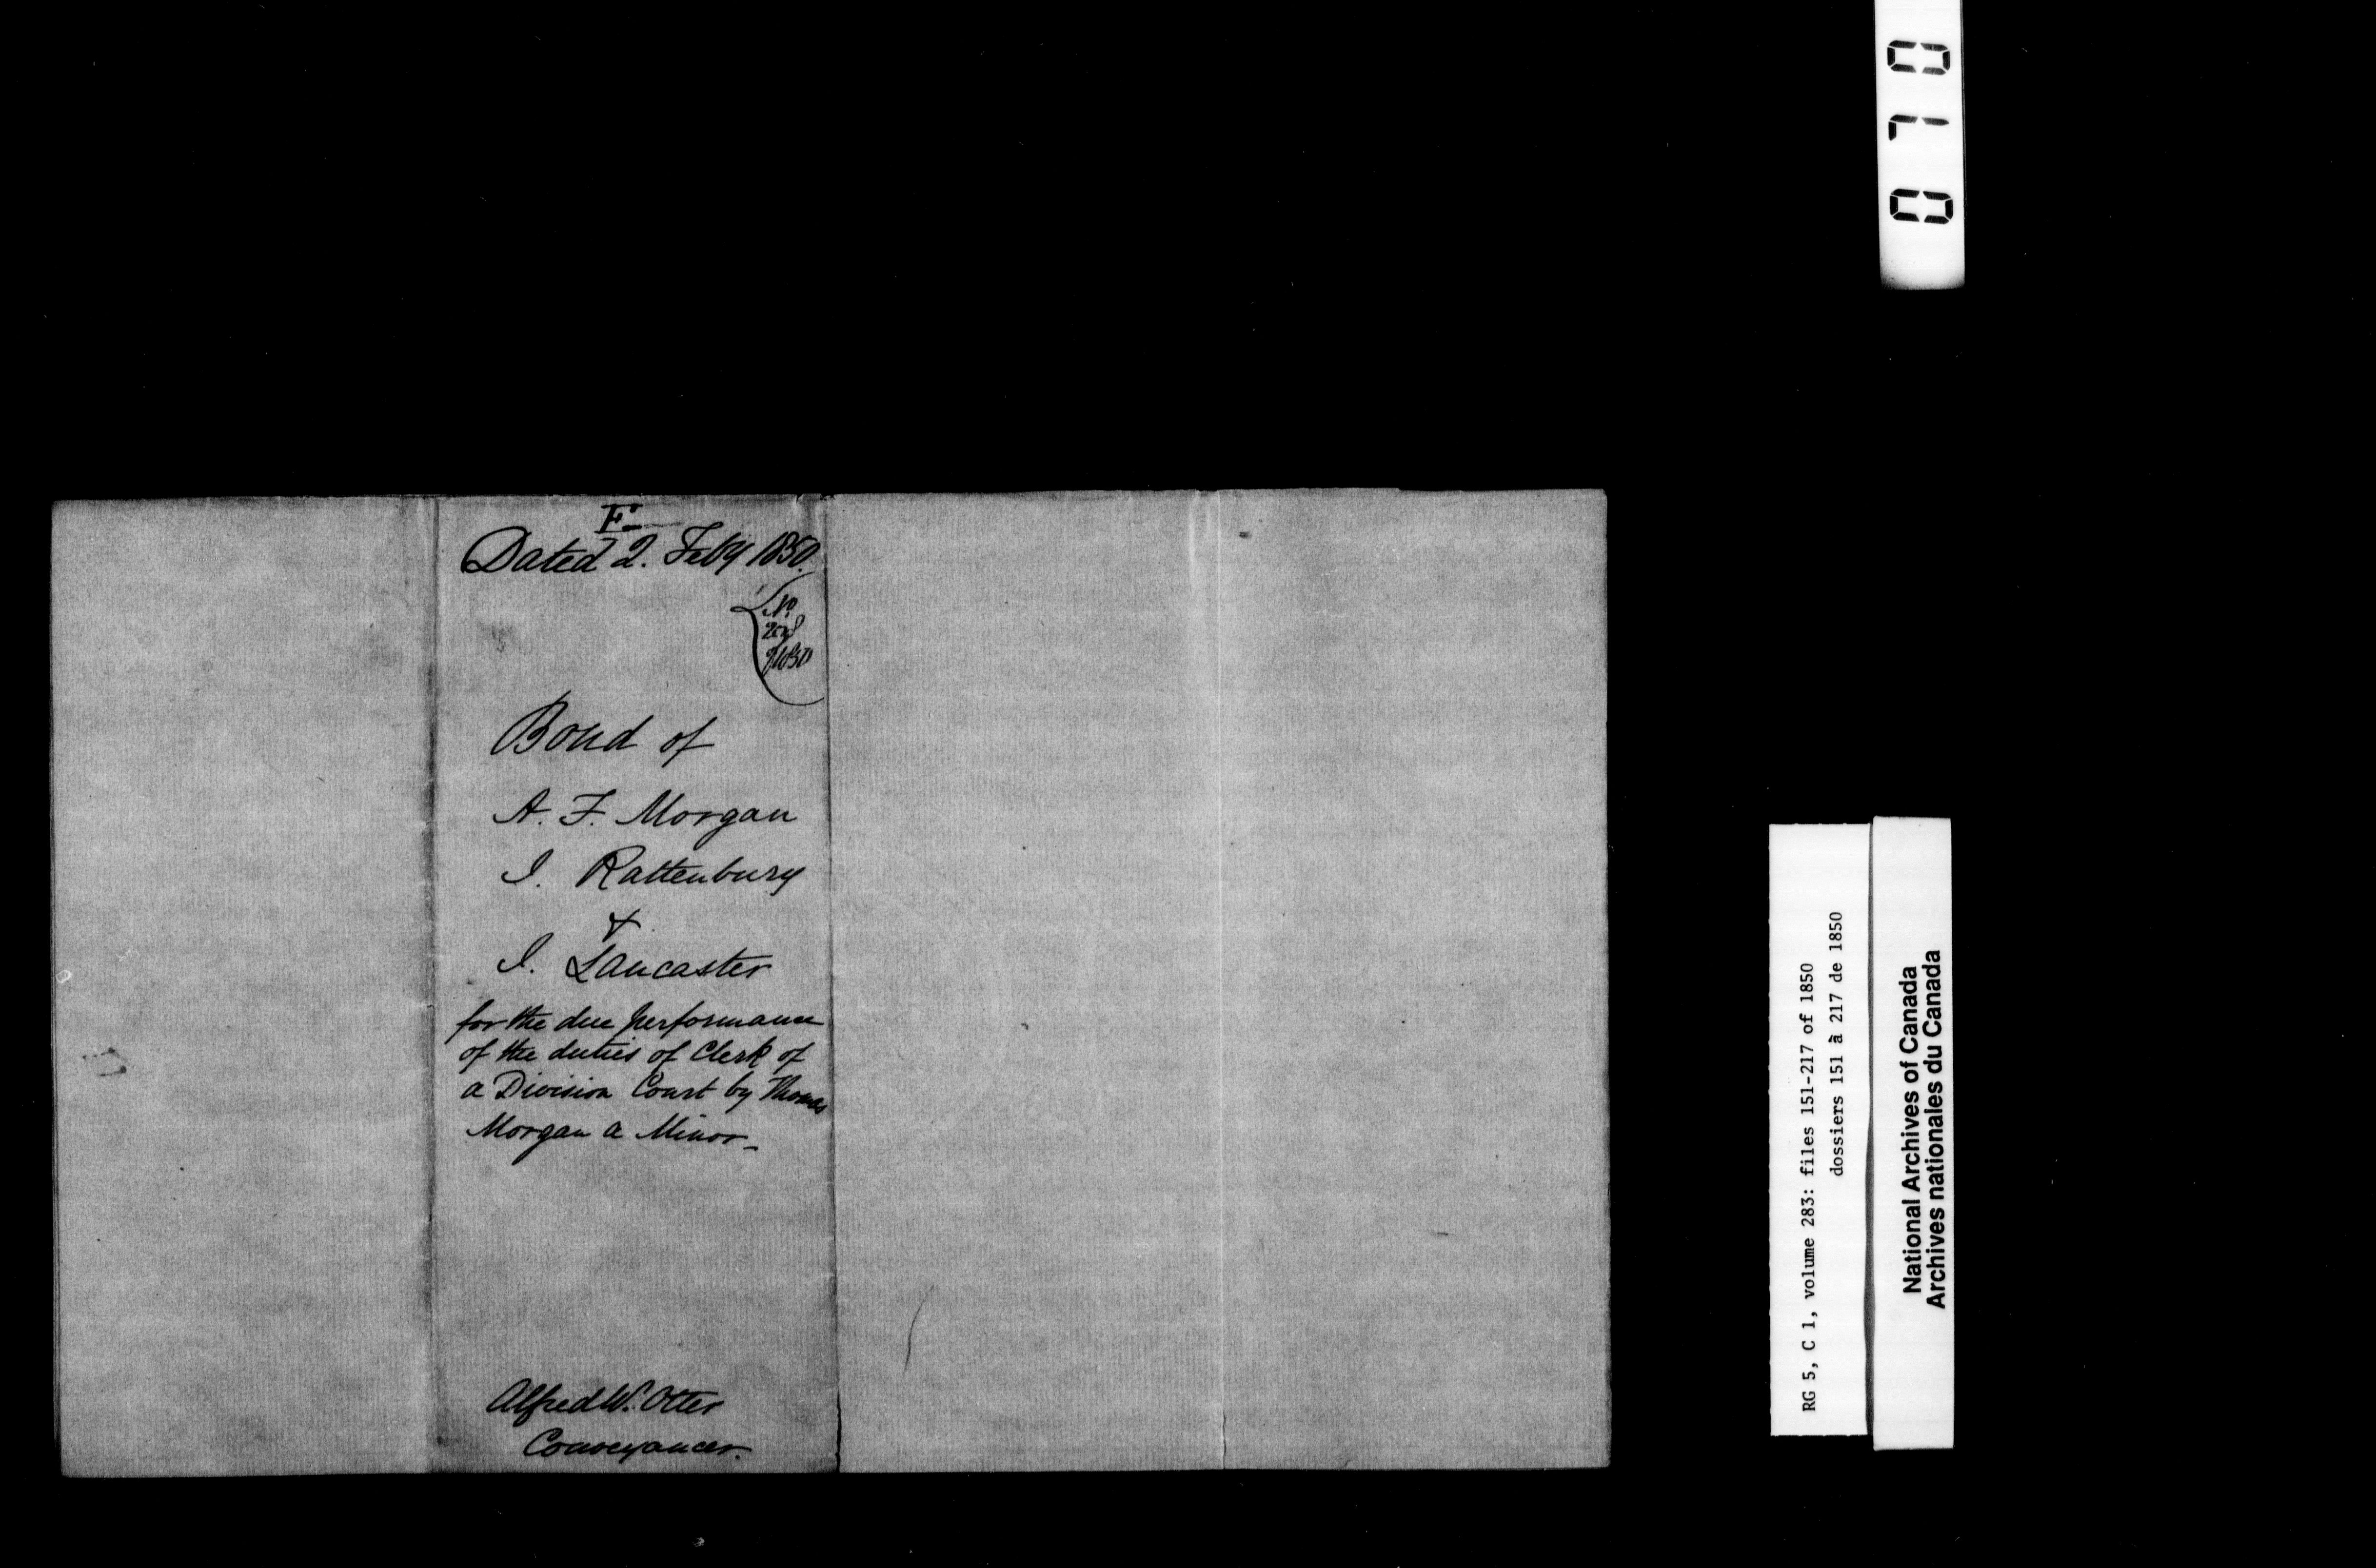 F
Dated 2. Feby 1850.
No.
of 1850
Bond of
A. F. Morgan
I. Rattenbury
&
I. Lancaster
for the due performance
of the duties of Clerk of
a Division Court by Thomas
Morgan a Minor_
Alfred W. Otter
Conveyancer.
070
RG 5, C 1, volume 283: files 151-217 of 1850
dossiers 151 à 217 de 1850
National Archives of Canada
Archives nationales du Canada